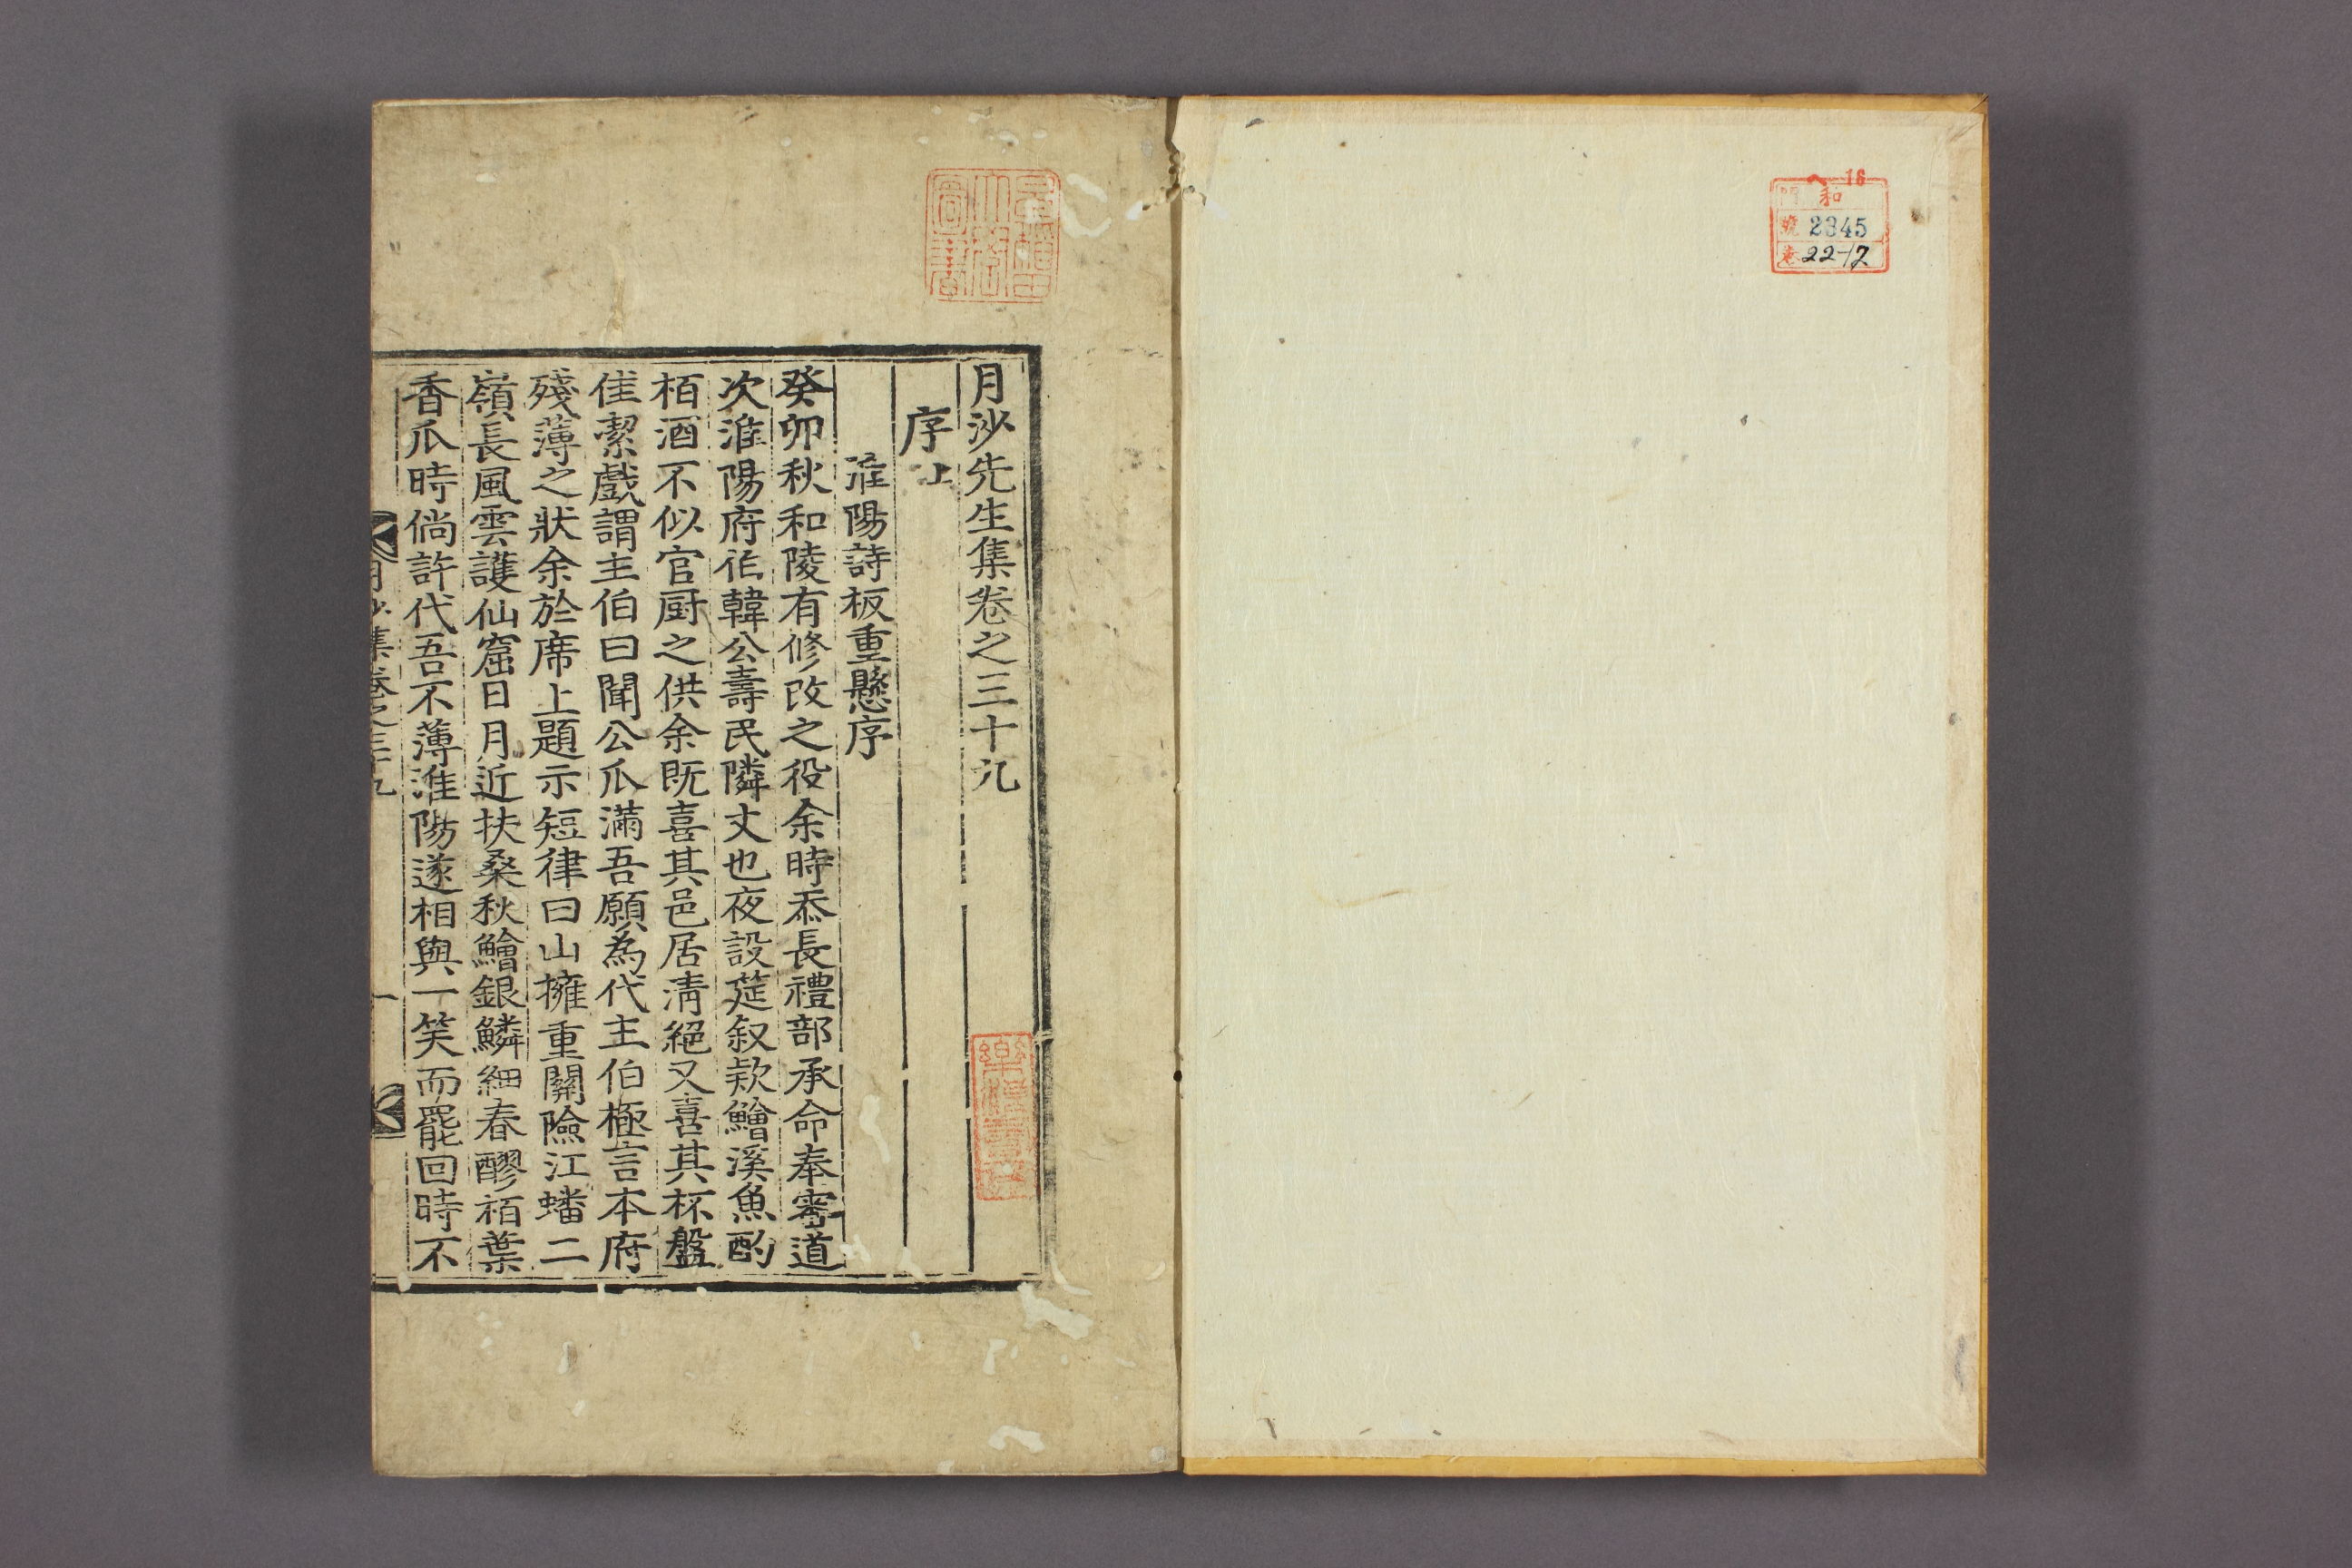 ヘ 16
門 和
號 2345
巻 22-17
月沙先生集卷之三十九
序上
淮陽詩板重懸序
癸卯秋和陵有修改之役余時忝長禮部承命奉審道
次淮陽府伯韓公壽民隣丈也夜設筵叙欵鱠溪魚酌
栢酒不似官厨之供余既喜其邑居淸絕又喜其杯盤
佳潔戲謂主伯曰聞公瓜滿吾願為代主伯極言本府
殘薄之狀余於席上題示短律曰山擁重關險江蟠二
嶺長風雲護仙窟日月近扶桑秋鱠銀鱗細春醪栢葉
香瓜時倘許代吾不薄淮陽遂相與一笑而罷回時不
月沙集卷之三十九
一